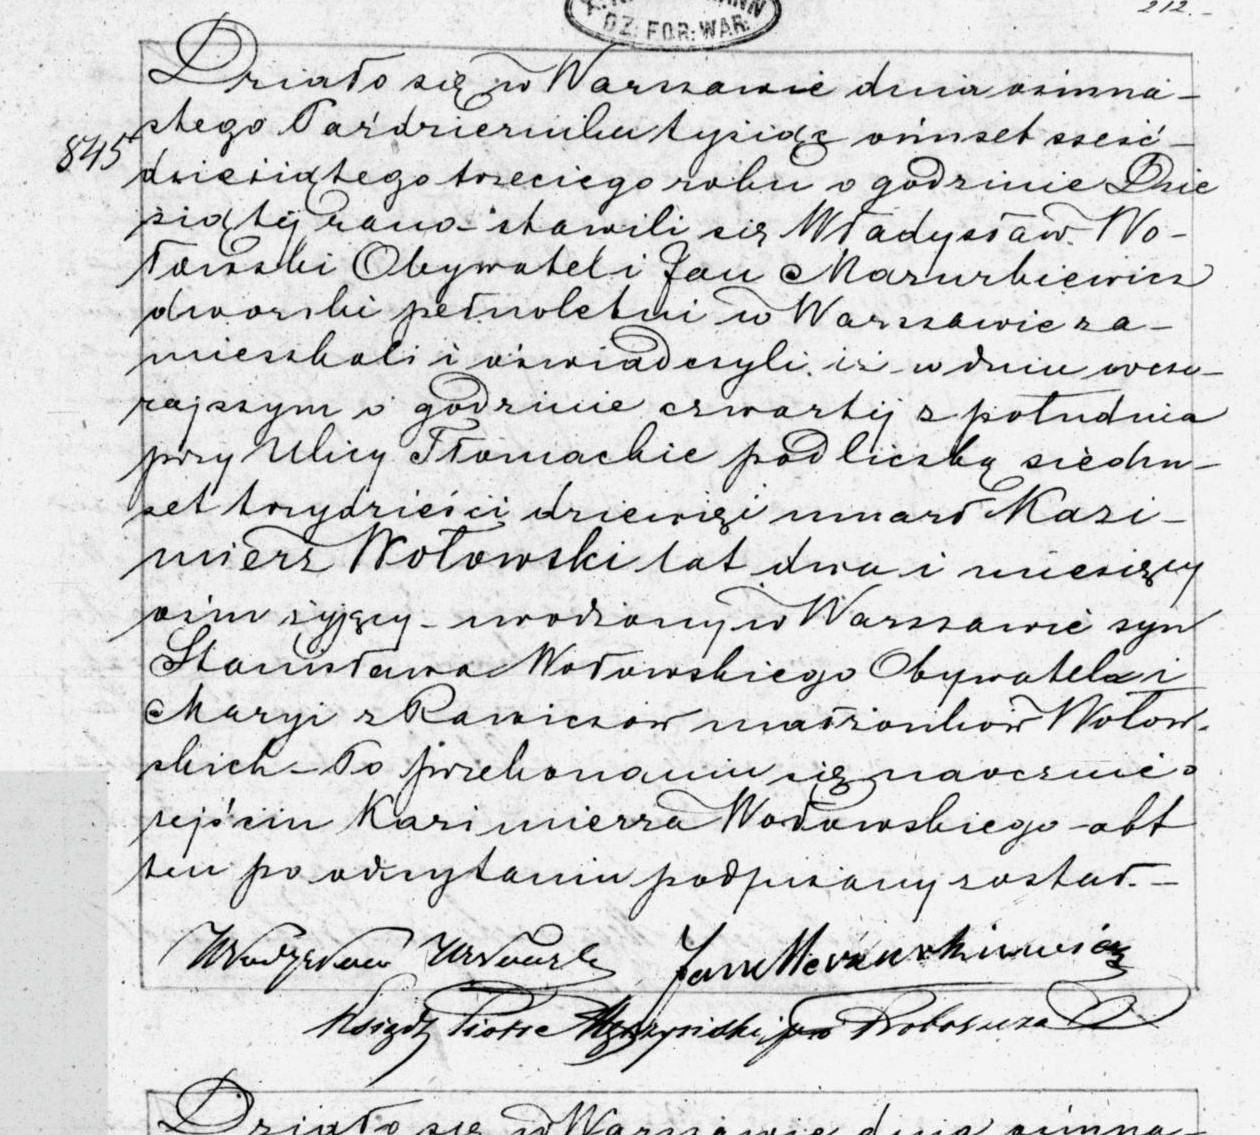 DZ: FOR: WAR:
212.
Działo się w Warszawie dnia ośmna-
stego Października tysiąc ośmset sześć-
845
dziesiątego trzeciego roku o godzinie Dzie
siątej rano- stawili się Władysław Wo-
łowski Obywatel i Jan Mazurkiewicz
dworski pełnoletni w Warszawie za-
mieszkali i oświadczyli, iż w dniu wczo-
rajszym o godzinie czwartej z południa
przy Ulicy Tłomackie pod liczbą siedm-
set trzydzieści dziewięć umarł Kazi-
mierz Wołowski lat dwa i miesięcy
ośm żyjący - urodzony w Warszawie syn
Stanisława Wołowskiego Obywatela i
Maryi z Rawiczów małżonków Wołow-
skich - Po przekonaniu się naocznie o
zejściu Kazimierza Wołowskiego akt
ten po odczytaniu podpisany został. -
Władysław Wołowski Jan Mazurkiewicz
Ksiądz Piotr za Proboszcza
Działo się w Warszawie dnia ośmna-